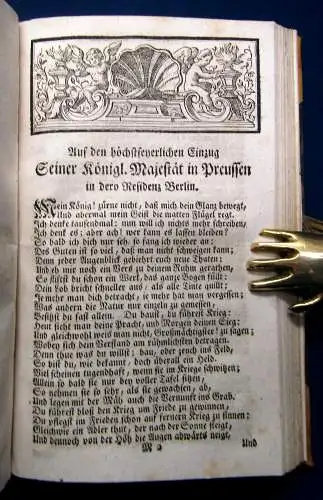 Auf den höchstfeyerlichen Einzug
Seiner Königl. Majestät in Preussen
in dero Residenz Berlin.
Mein König! zürne nicht, daß mich dein Glanz bewegt,
Und abermal mein Geist die matten Flügel regt.
Ich denke tausendmal: nun will ich nichts mehr schreiben,
Ich denk es; aber ach! wer kann es lassen bleiben?
So bald ich dich nur seh, so fang ich wieder an:
Des Guten ist so viel, daß man nicht schweigen kann;
Denn jeder Augenblick gebiehrt euch neue Thaten:
Und eh mir noch ein Vers zu deinem Ruhm gerathen,
So stießt du schon ein Werk, das ganze Bogen füllt:
Dein Lob bricht schneller aus, als alle Tinte quillt:
Je mehr man dich betracht, je mehr hat man vergessen;
Was andern die Natur nur einzeln zu gemessen,
Besitzt du fast allein. Du baust, du führest Krieg:
Heut sieht man deine Pracht, und Morgen deinen Sieg:
Und gleichwohl weiß man nicht, Großmächtigster! zu sagen;
Wobey sich dein Verstand am rühmlichsten betragen.
Denn thue was du willst: bau, oder zeuch ins Feld,
So bist du, wie bekannt, doch überall ein Held.
Viel scheinen tugendhaft, wenn sie im Kriege schwitzen;
Allein so bald sie nur bey voller Tafel sitzen,
So nehmen sie so sehr, als sie gewachsen, ab,
Und legen mit der Müh auch die Vernunft ins Grab.
Du führest bloß den Krieg um Friede zu gewinnen,
Du pflegst im Frieden schon auf fernern Krieg zu sinnen:
Gleichwie ein Adler thut, der nach der Sonne steigt,
Und dennoch von der Höh die Augen abwärts neigt,
M 2 Und